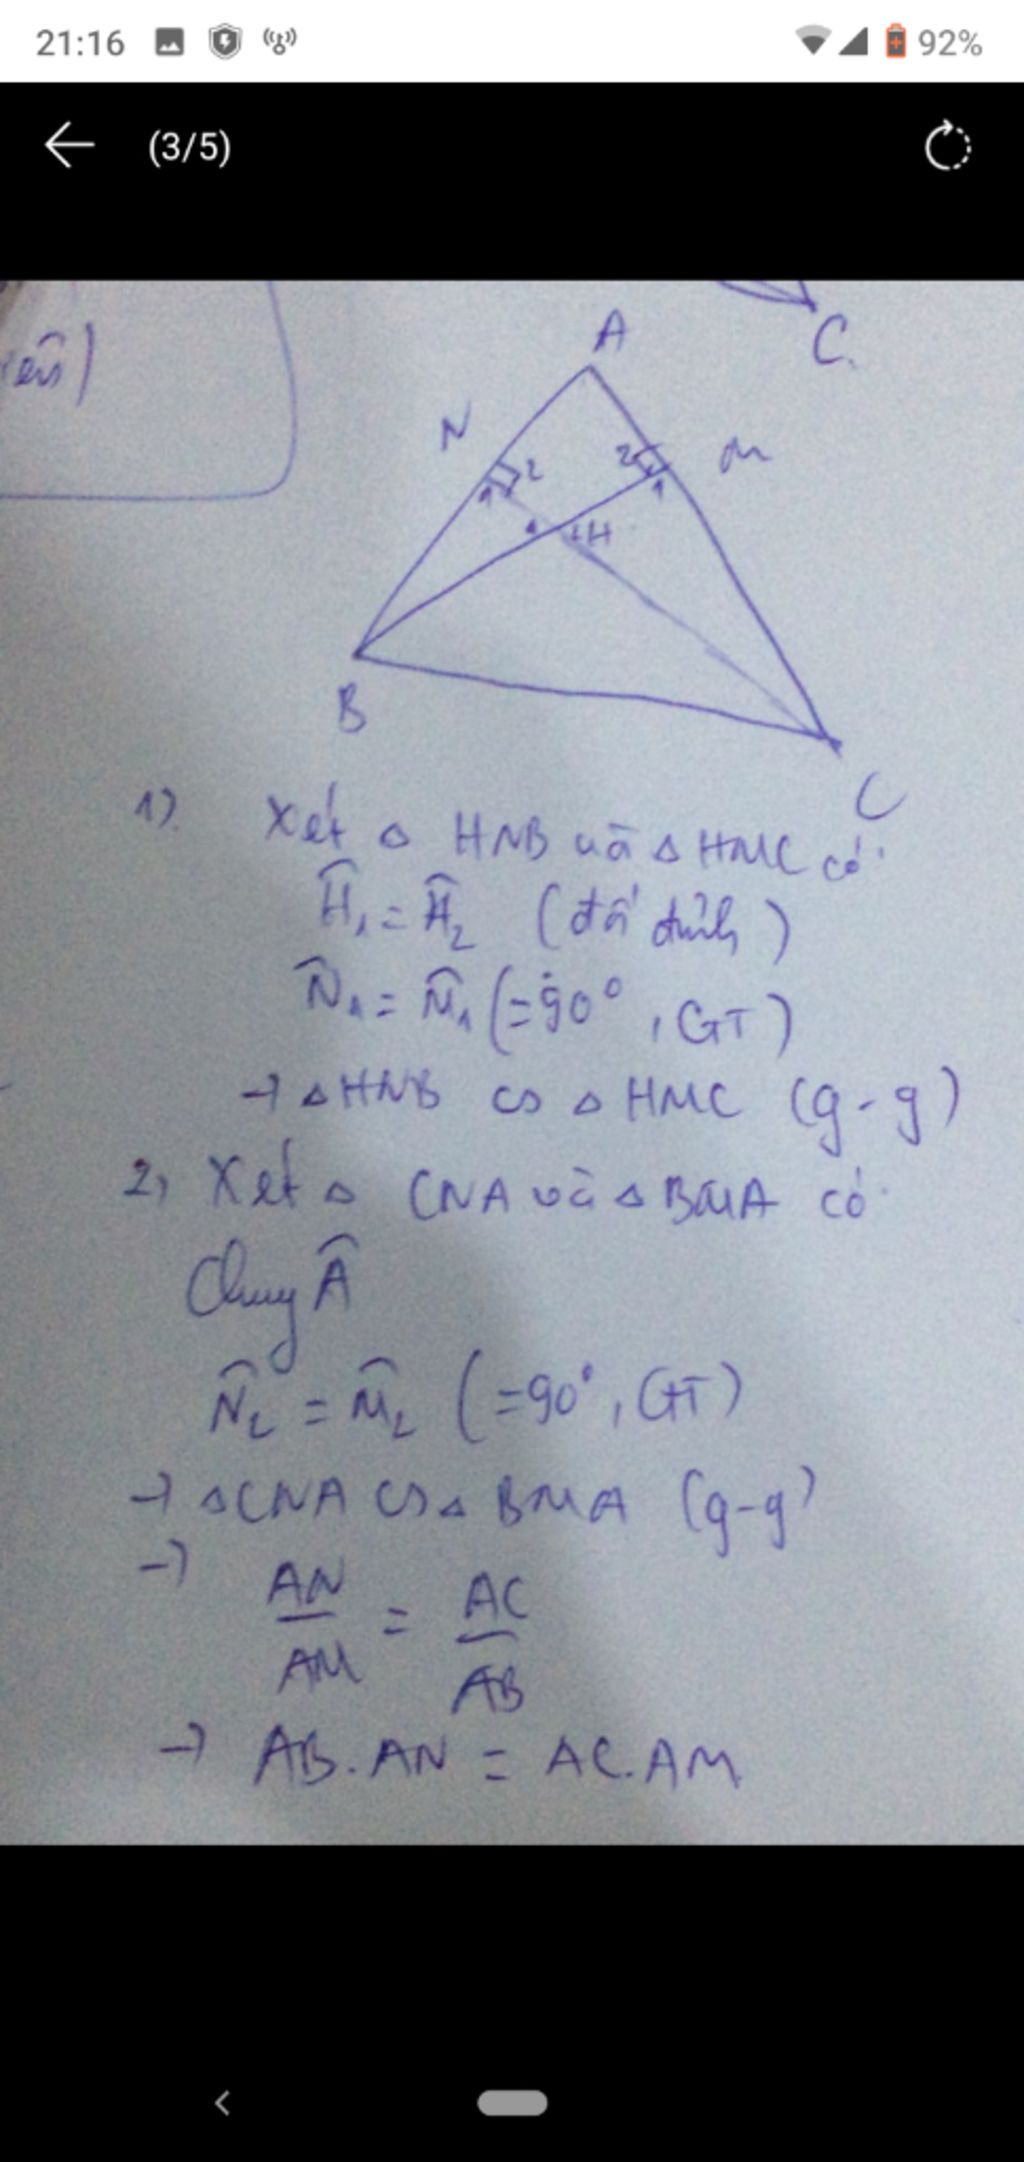 21:16
92%
(3/5)
C.
A
N
M
2
2
1
1
1
2H
B
C
1). Xét △ HNB và △ HMC có:
Ĥ₁ = Ĥ₂ (đối đỉnh)
N̂₁ = M̂₁ (=90°, GT)
→ △HNB ∽ △ HMC (g-g)
2, Xét △ CNA và △ BMA có
Chung Â
N̂₂ = M̂₂ (=90°, GT)
→ △CNA ∽ △ BMA (g-g)
→ AN/AM = AC/AB
→ AB.AN = AC.AM